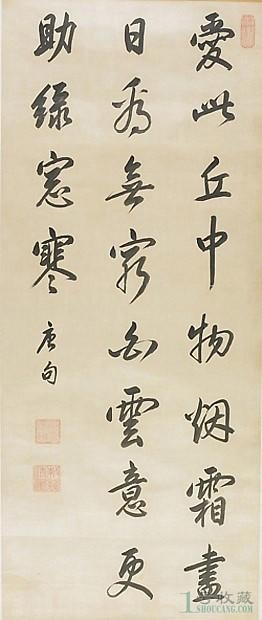 愛此丘中物烟霜盡
日看無窮白雲意更
助綠窓寒
唐句
1号收藏
1SHOUCANG.COM